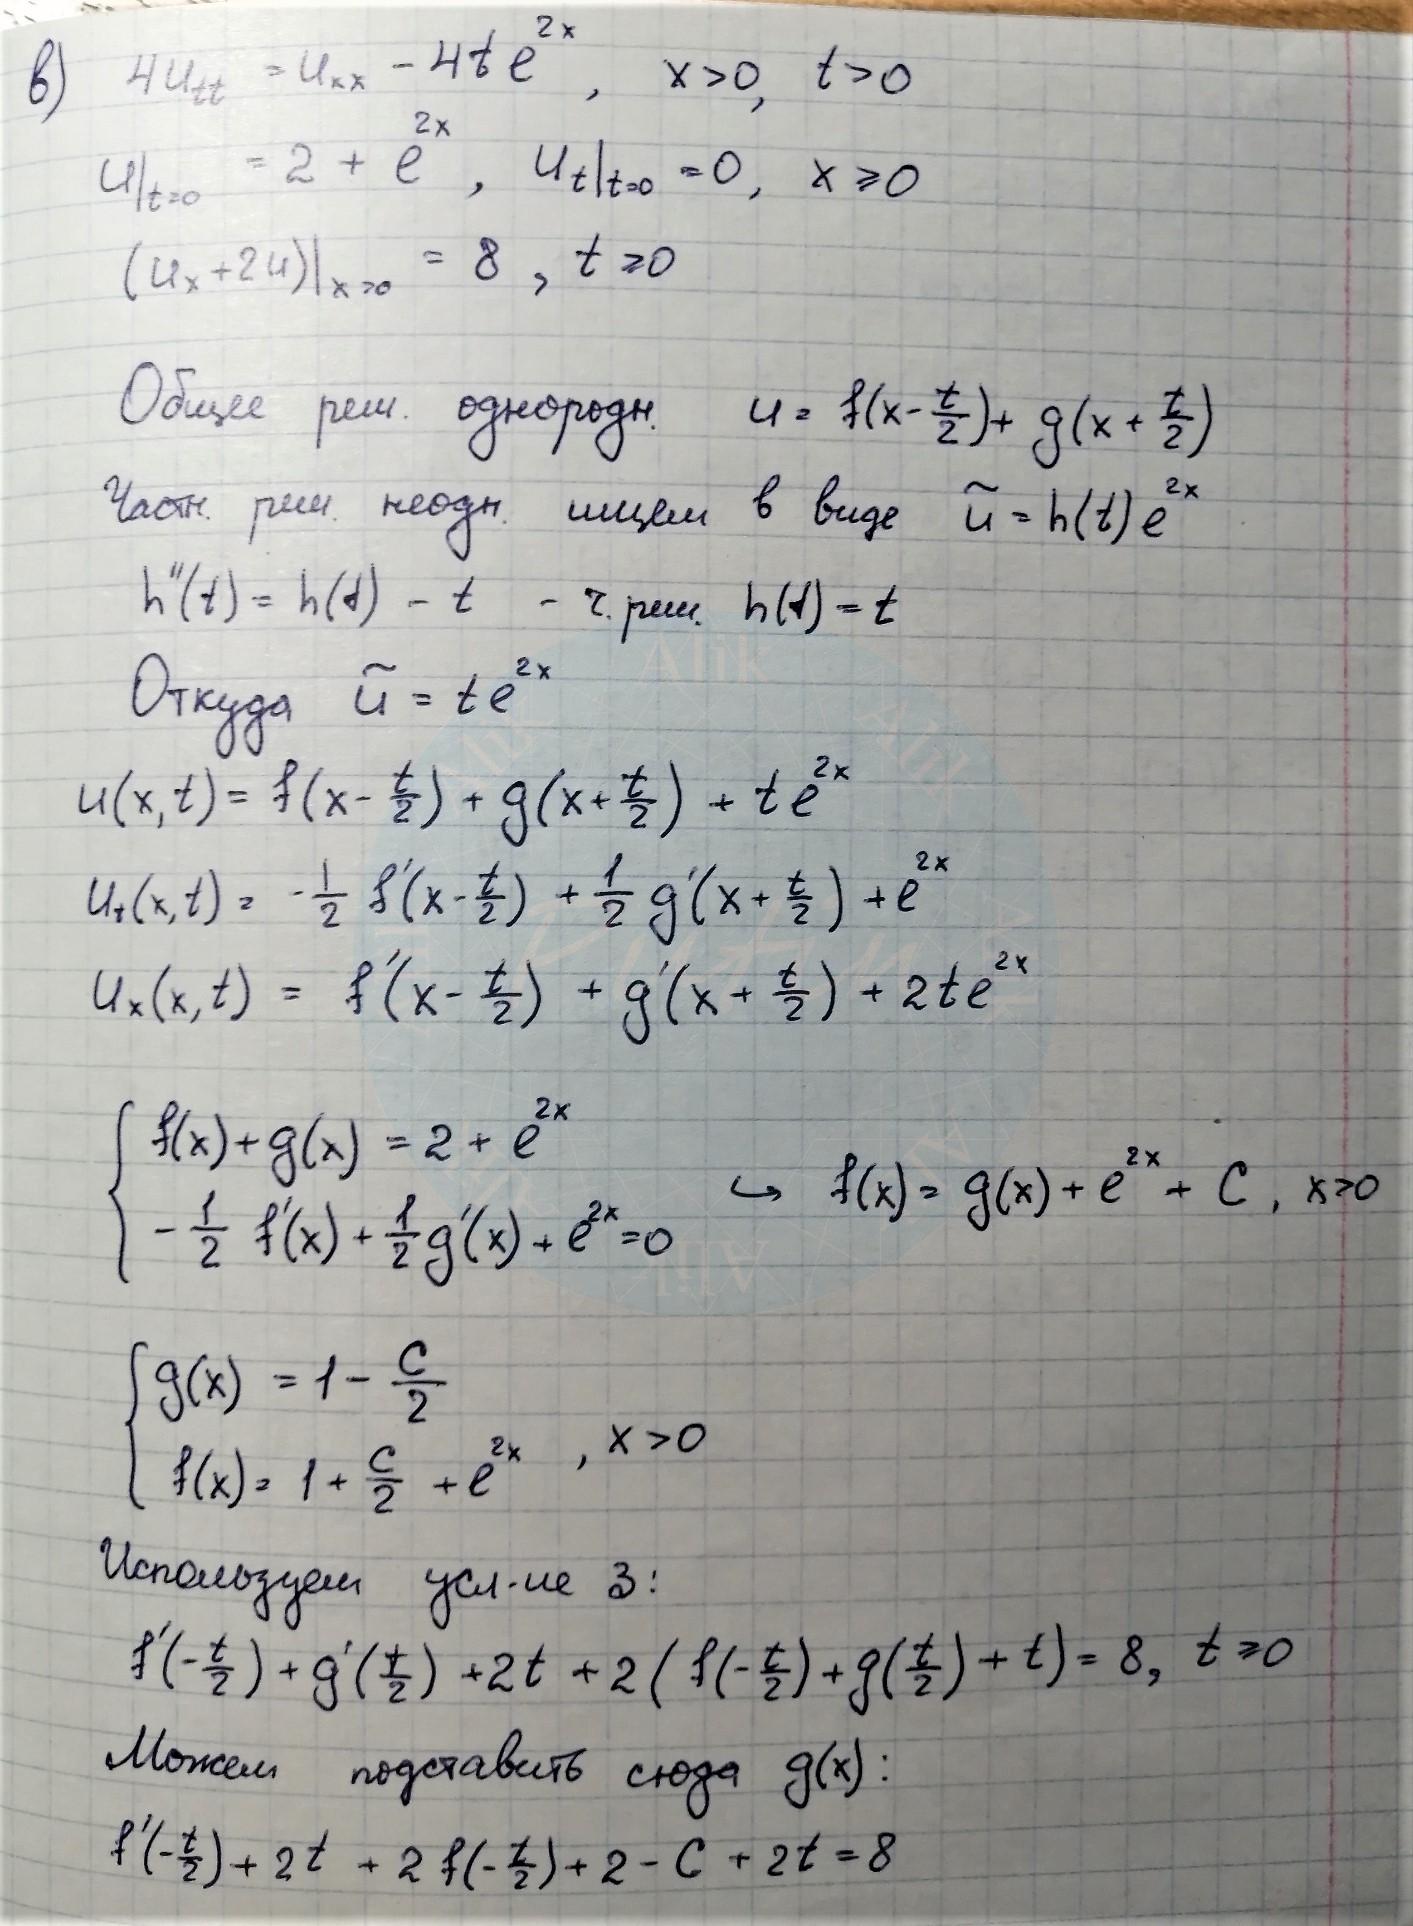 в) 4u_tt = u_xx - 4te^{2x}, x>0, t>0
u|_{t=0} = 2 + e^{2x}, u_t|_{t=0} = 0, x⩾0
(u_x+2u)|_{x=0} = 8, t⩾0
Общее реш. однородн. u = f(x-t/2) + g(x+t/2)
Частн. реш. неодн. ищем в виде ũ = h(t)e^{2x}
h''(t) = h(t) - t - ч. реш. h(t) = t
Откуда ũ = te^{2x}
u(x,t) = f(x-t/2) + g(x+t/2) + te^{2x}
u_t(x,t) = -1/2 f'(x-t/2) + 1/2 g'(x+t/2) + e^{2x}
u_x(x,t) = f'(x-t/2) + g'(x+t/2) + 2te^{2x}
{ f(x)+g(x) = 2 + e^{2x}
-1/2 f'(x) + 1/2 g'(x) + e^{2x} = 0 ↪ f(x) = g(x) + e^{2x} + C, x>0
{ g(x) = 1 - C/2
f(x) = 1 + C/2 + e^{2x}, x>0
Используем усл-ие 3:
f'(-t/2) + g'(t/2) + 2t + 2(f(-t/2) + g(t/2) + t) = 8, t⩾0
Можем подставить сюда g(x):
f'(-t/2) + 2t + 2f(-t/2) + 2 - C + 2t = 8
Alik
Alik
Alik